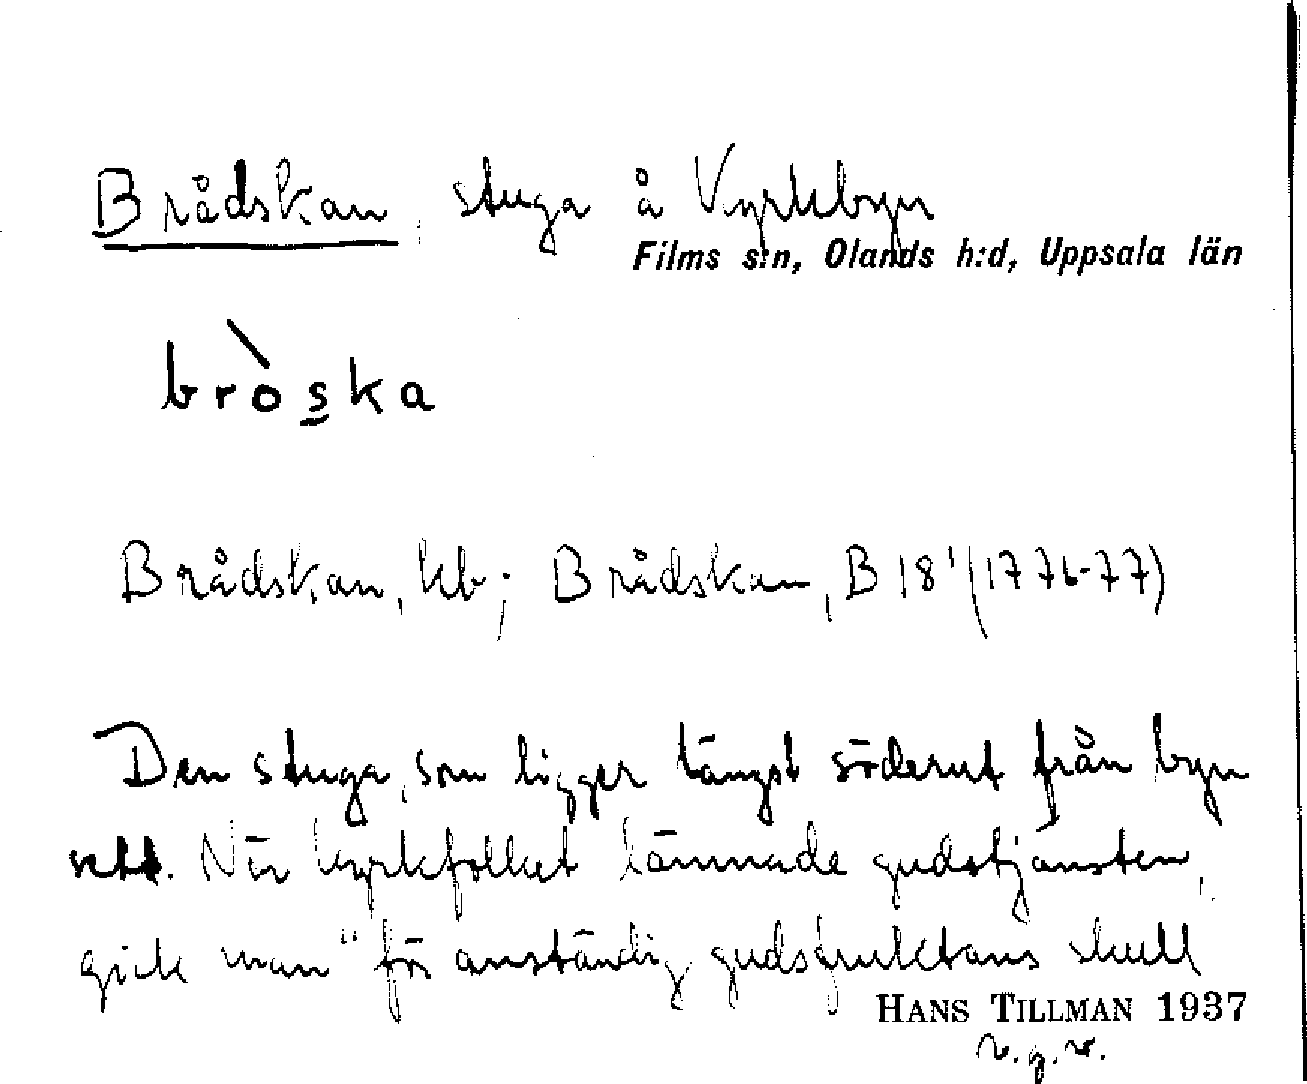 Brådskan, stuga å Kyrkbyn
Films s:n, Olands h:d, Uppsala län
bròska
Brådskan, kb; Brådskan, B 18¹ (1776-77)
Den stuga, som ligger längst söderut från byn
sett. När kyrkfolket lämnade gudstjänsten,
gick man "för anständig gudsfruktans skull
HANS TILLMAN 1937
v.g.v.